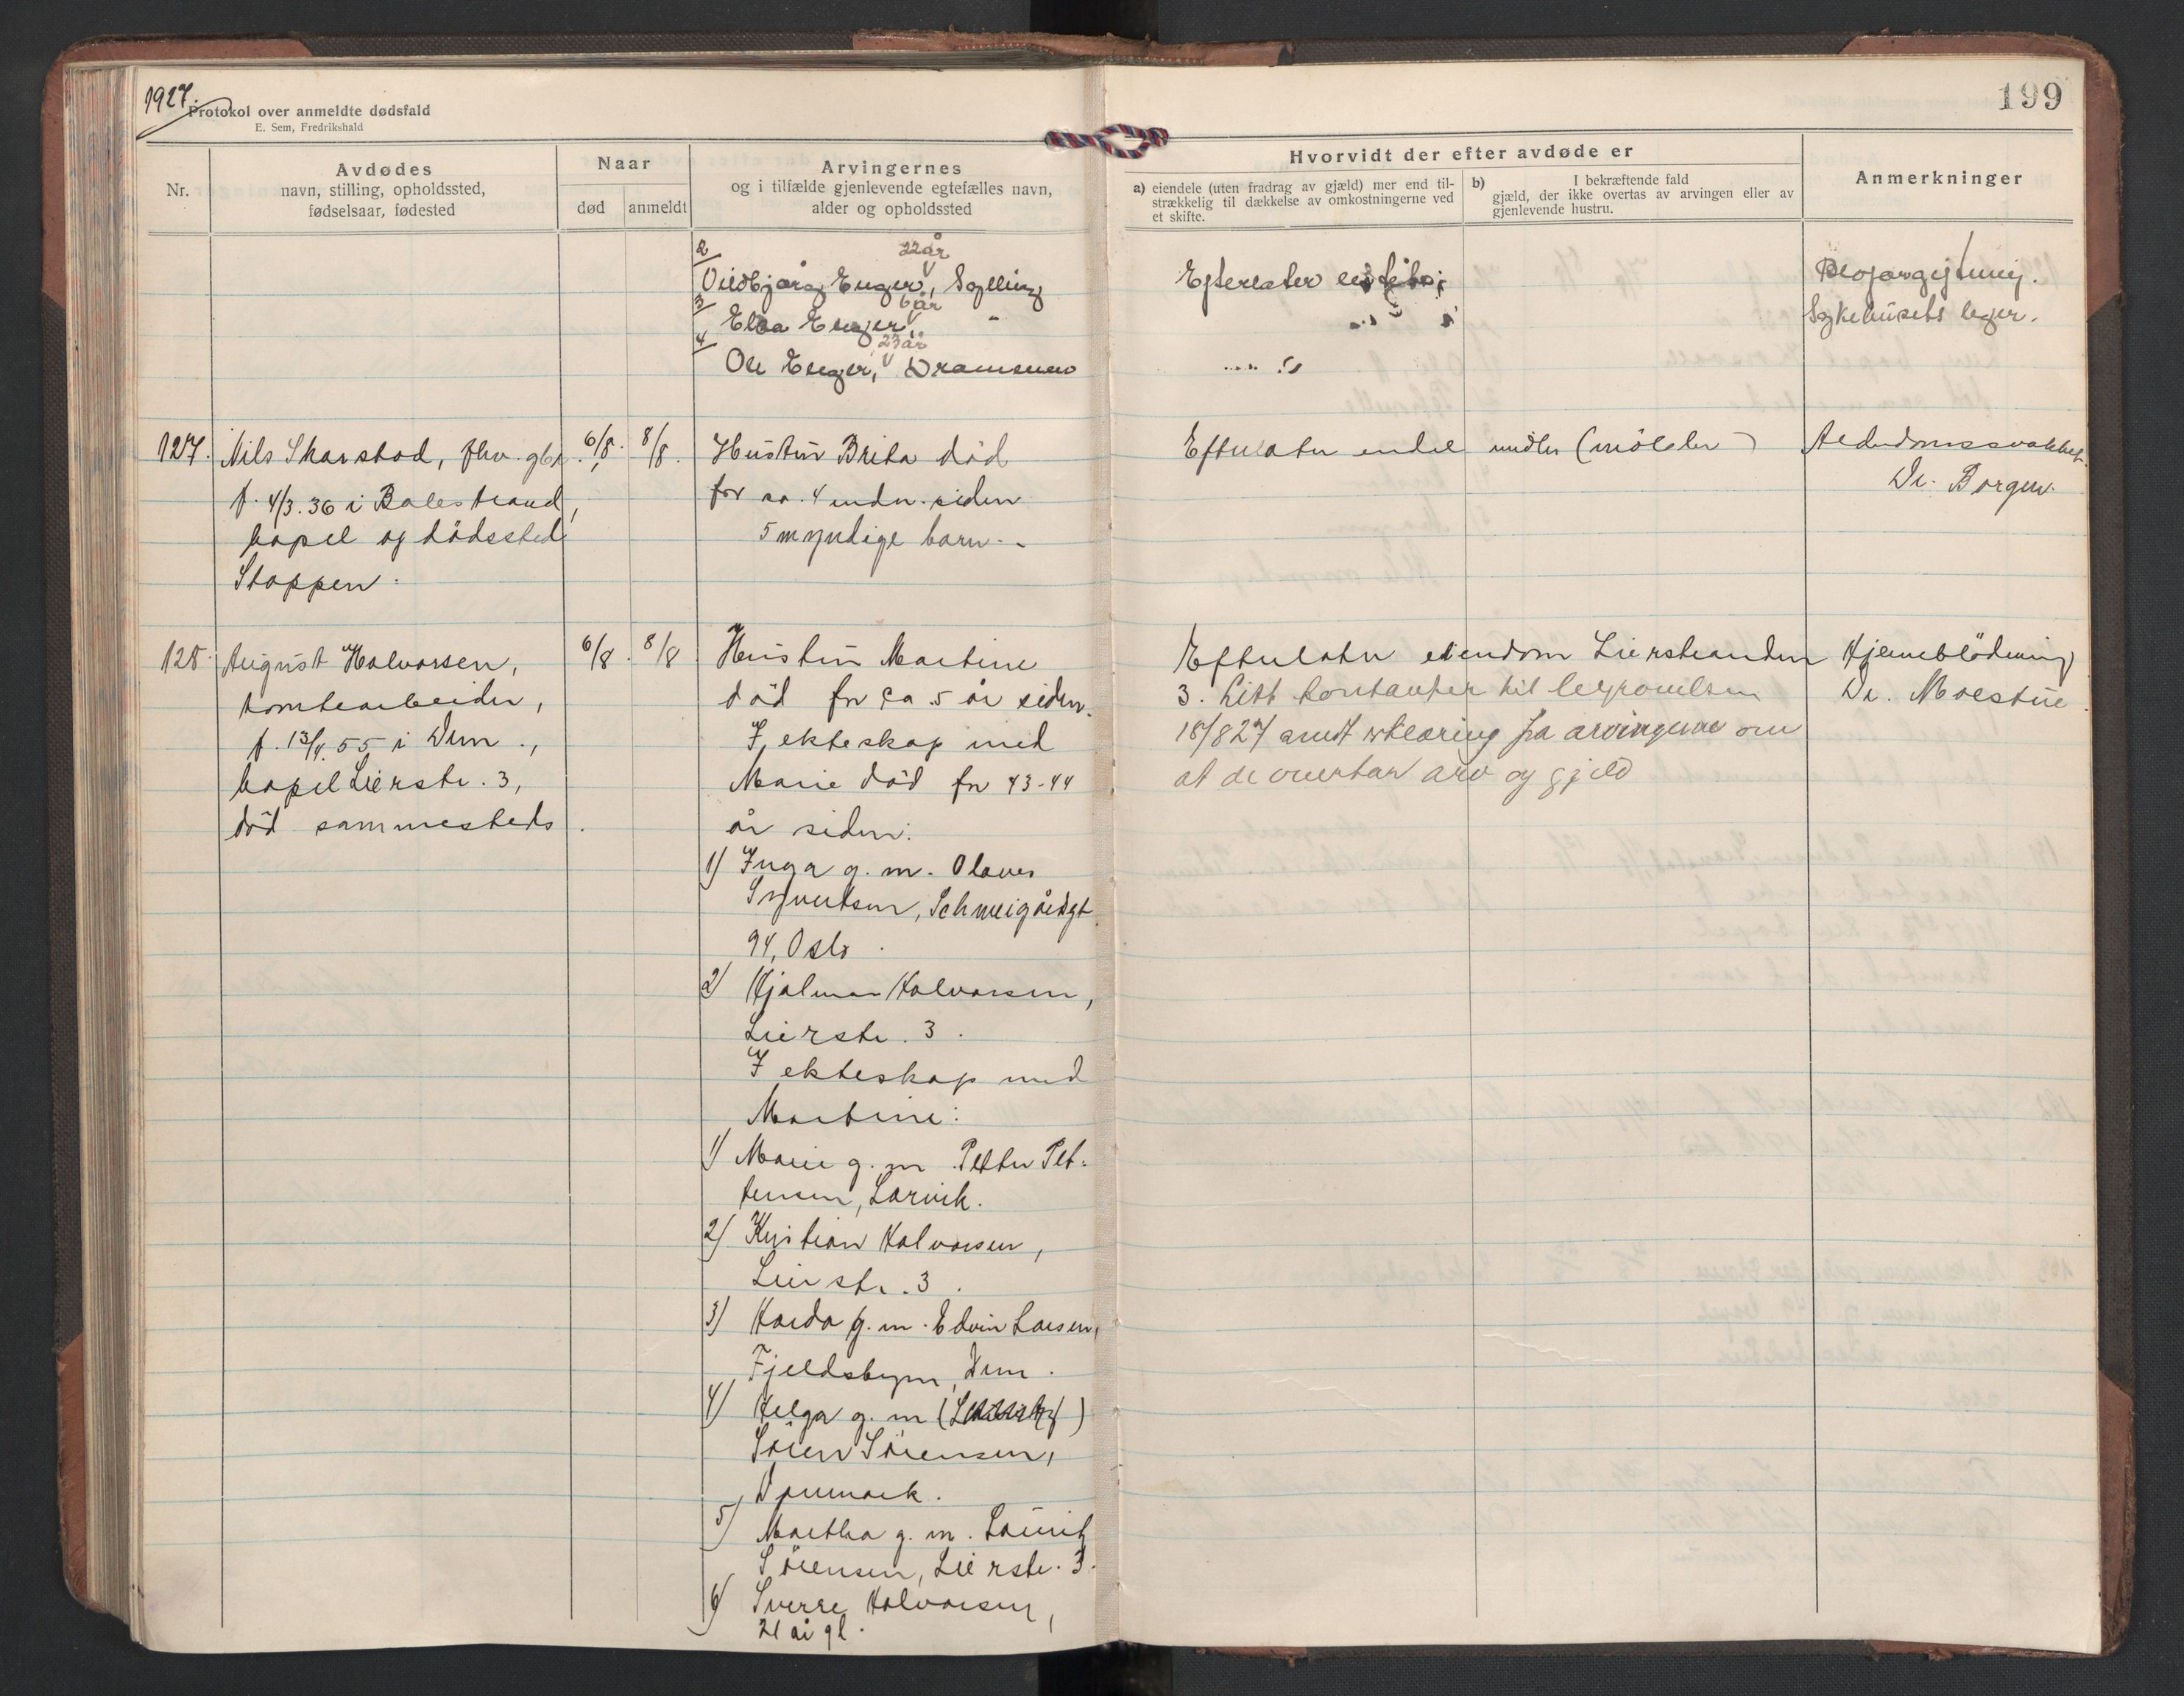 1927.
Protokol over anmeldte dødsfald
E. Sem, Fredrikshald
199
Nr.
Avdødes
navn, stilling, opholdssted,
fødselsaar, fødested
Naar
død
anmeldt
Arvingernes
og i tilfælde gjenlevende egtefælles navn,
alder og opholdssted
Hvorvidt der efter avdøde er
a) eiendele (uten fradrag av gjæld) mer end til-
strækkelig til dækkelse av omkostningerne ved
et skifte.
b) I bekræftende fald
gjæld, der ikke overtas av arvingen eller av
gjenlevende hustru.
Anmerkninger
2/ 22 år
Oddbjørg Enger, Sylling
3/ 6 år
Elsa Enger, "
4/ 23 år
Ole Enger, Drammen
Efterlater
Blodforgiftning.
Sykehusets leger.
127. Nils Skarstad, fhv. gbr.
f. 4/3.36 i Balestrand,
bopel og dödssted
Stoppen.
6/8. 8/8.
Hustru Brita död
for ca. 4 mdr. siden
5 myndige barn.
Efterlater endel midler (möbler)
Alderdomssvakhet.
Dr. Borgen.
128. August Halvorsen,
tomtearbeider,
f. 13/4.55 i Drm.,
bopel Lierstr. 3,
död sammesteds.
6/8. 8/8
Hustru Martine
död for ca 5 år siden.
I ekteskap med
Marie död for 43-44
år siden:
1) Inga g. m. Olaves
Syvertsen, Schweigårdgt.
94, Oslo.
2) Hjalmar Halvorsen,
Lierstr. 3.
I ekteskap med
Martine:
1) Marie g. m. Petter Pet-
tersen, Larvik.
2) Kristian Halvorsen,
Lierstr. 3.
3) Harda g. m. Edvin Larsen,
Fjeldsbyen, Drm.
4) Helga g. m
Sören Sörensen,
Danmark.
5) Martha g. m. Laurit
Sörensen, Lierstr. 3.
6) Sverre Halvorsen,
21 år gl.
Efterlater eiendom Lierstranden
3. Litt kontanter til begravelsen
18/8 27 anmt erklæring fra arvingerne om
at de overtar arv og gjeld
Hjerneblödning
Dr. Moestue.